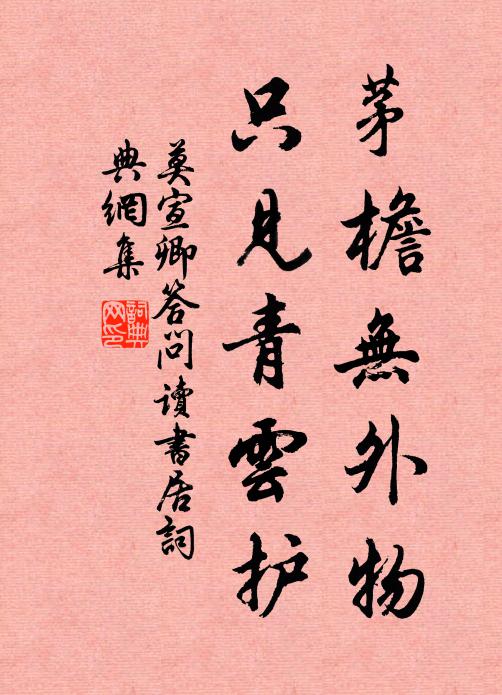 茅檐無外物
只見青雲护
莫宣卿答问讀書居詞
典網集
詞典網印